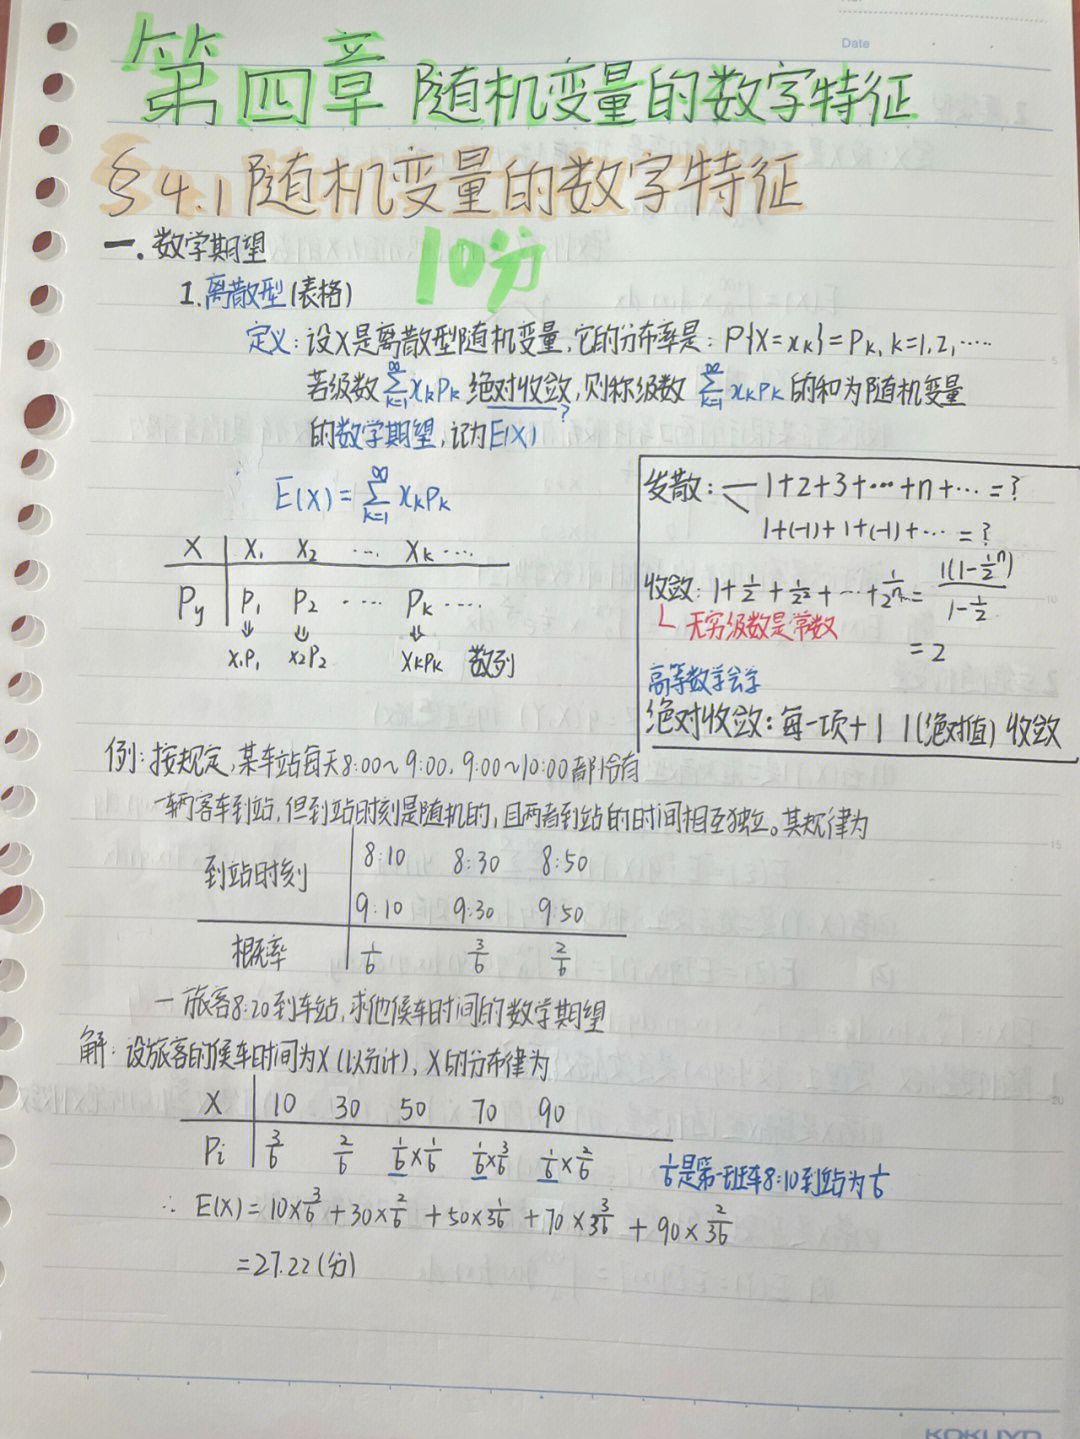 Date
第四章 随机变量的数字特征
§4.1 随机变量的数字特征
一. 数学期望
10分
1. 离散型(表格)
定义: 设X是离散型随机变量, 它的分布率是: P{X=xk}=Pk, k=1,2,……
若级数 ∑(k=1→∞) xkPk 绝对收敛, 则称级数 ∑(k=1→∞) xkPk 的和为随机变量
?
的数学期望, 记为E(X)
E(X)=∑(k=1→∞) xkPk
X | X1 X2 … Xk …
Py | P1 P2 … Pk …
⇓ ⇓ ⇓
X1P1 X2P2 XkPk 数列
发散: 1+2+3+…+n+…=?
1+(-1)+1+(-1)+…=?
收敛: 1+1/2+1/2²+…+1/2ⁿ=1(1-1/2ⁿ)/(1-1/2)
└ 无穷级数是常数
=2
高等数学会学
绝对收敛: 每一项+| |(绝对值) 收敛
例: 按规定, 某车站每天8:00~9:00, 9:00~10:00都恰有
一辆客车到站, 但到站时刻是随机的, 且两者到站的时间相互独立。其规律为
8:10 8:30 8:50
到站时刻
9:10 9:30 9:50
概率 1/6 3/6 2/6
一旅客8:20到车站, 求他候车时间的数学期望
解: 设旅客的候车时间为X(以分计), X的分布律为
X | 10 30 50 70 90
Pi | 3/6 2/6 1/6×1/6 1/6×3/6 1/6×2/6
1/6是第一班车8:10到站为1/6
∴ E(X)=10×3/6+30×2/6+50×1/36+70×3/36+90×2/36
=27.22(分)
KOKUYO